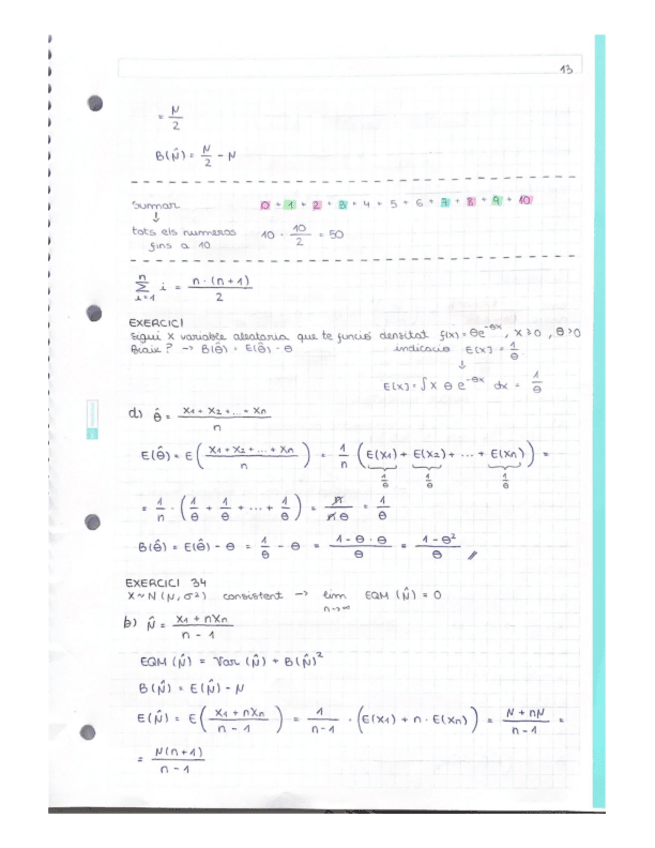 13
= N/2
B(N̂) = N/2 - N
Sumar 0 + 1 + 2 + 3 + 4 + 5 + 6 + 7 + 8 + 9 + 10
↓
tots els numeros 10 · 10/2 = 50
fins a 10
n∑i=1 i = n · (n + 1)/2
EXERCICI
Sigui X variable aleatoria que te funció densitat f(x) = θe^-θx, x ≥ 0, θ > 0
Biaix? → B(θ̂) = E(θ̂) - θ indicacio E[x] = 1/θ
↓
E[x] = ∫ x θ e^-θx dx = 1/θ
d) θ̂ = x1 + x2 + ... + xn/n
E(θ̂) = E(x1 + x2 + ... + xn/n) = 1/n (E(x1) + E(x2) + ... + E(xn)) =
1/θ 1/θ 1/θ
= 1/n · (1/θ + 1/θ + ... + 1/θ) = n/nθ = 1/θ
B(θ̂) = E(θ̂) - θ = 1/θ - θ = 1 - θ · θ/θ = 1 - θ²/θ //
EXERCICI 34
X ~ N(N, σ²) consistent → lim n→∞ EQM (N̂) = 0
b) N̂ = x1 + nxn/n - 1
EQM (N̂) = Var (N̂) + B(N̂)²
B(N̂) = E(N̂) - N
E(N̂) = E(x1 + nxn/n - 1) = 1/n-1 · (E(x1) + n · E(xn)) = N + nN/n - 1 =
= N(n + 1)/n - 1